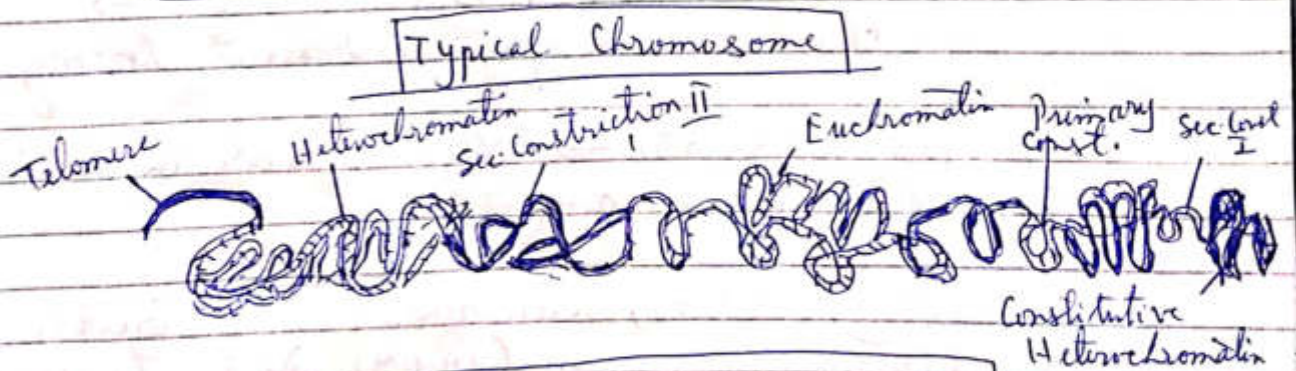 Typical Chromosome
Telomere
Heterochromatin
Sec. Constriction II
Euchromatin
Primary
Const.
Sec. Const
I
Constitutive
Heterochromatin